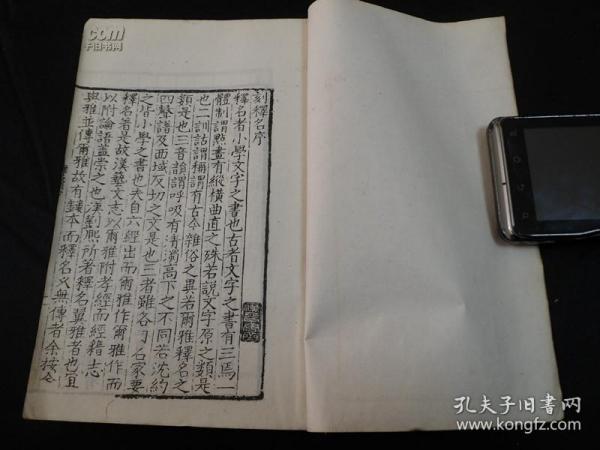 刻釋名序
釋名者小學文字之書也古者文字之書有三焉一
體制謂點畫有縱横曲直之殊若說文字原之類是
也二訓詁謂稱謂有古今雜俗之異若爾雅釋名之
類是也三音韻謂呼吸有清濁高下之不同若沈約
四聲譜及西域反切之文是也三者雖各自名家要
之皆小學之書也夫自六經出而爾雅作爾雅作而
釋名著是故漢藝文志以爾雅附孝經而經籍志
以附論語蓋崇之也漢劉熙所著釋名翼雅者也宜
與雅並傳爾雅故有鋟本而釋名久無傳者余按全
com
孔夫子旧书网
www.kongfz.com